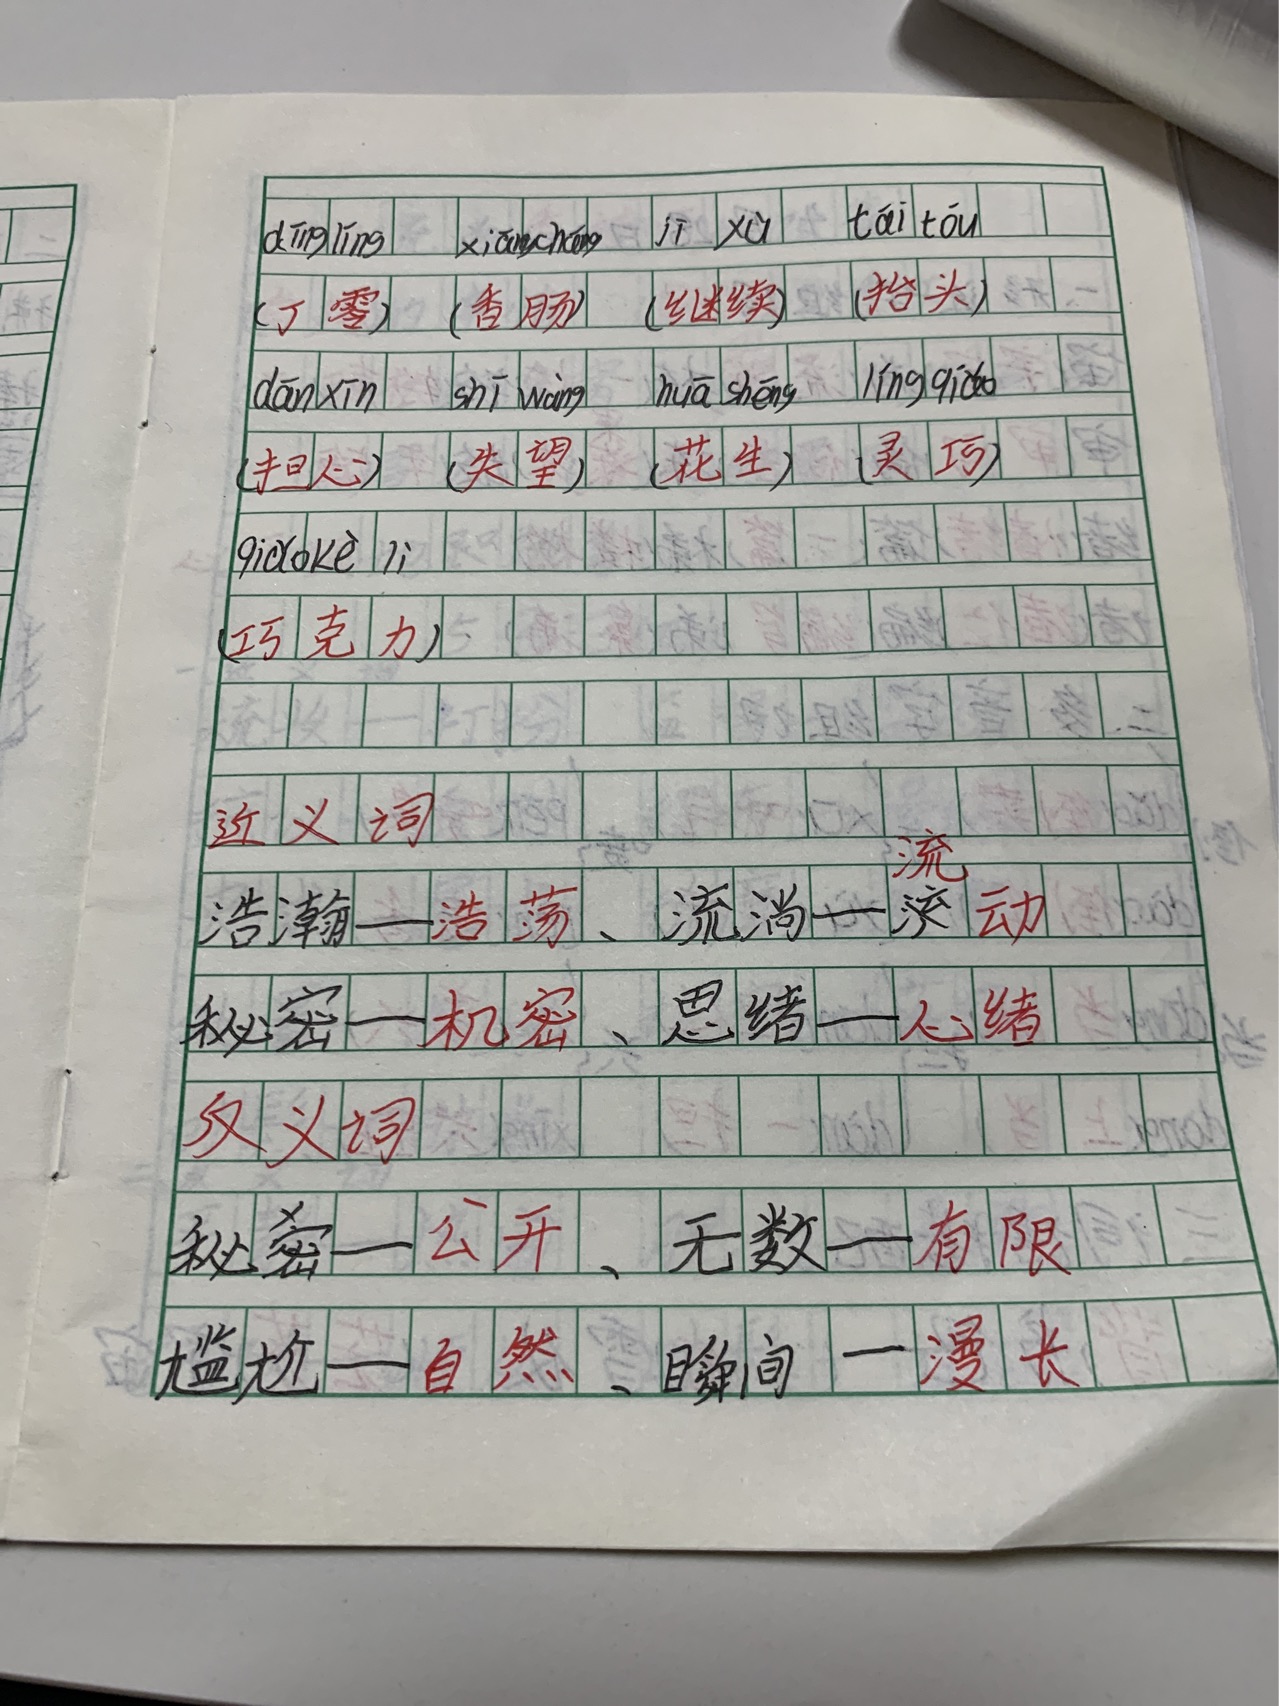 dīnglíng xiāngcháng jì xù tái tóu
(丁零) (香肠) (继续) (抬头)
dānxīn shī wàng huā shēng líng qiǎo
(担心) (失望) (花生) (灵巧)
qiǎokè lì
(巧克力)
近义词
流
浩瀚—浩荡、流淌—滚动
秘密—机密、思绪—心绪
反义词
秘密—公开、无数—有限
尴尬—自然、瞬间—漫长